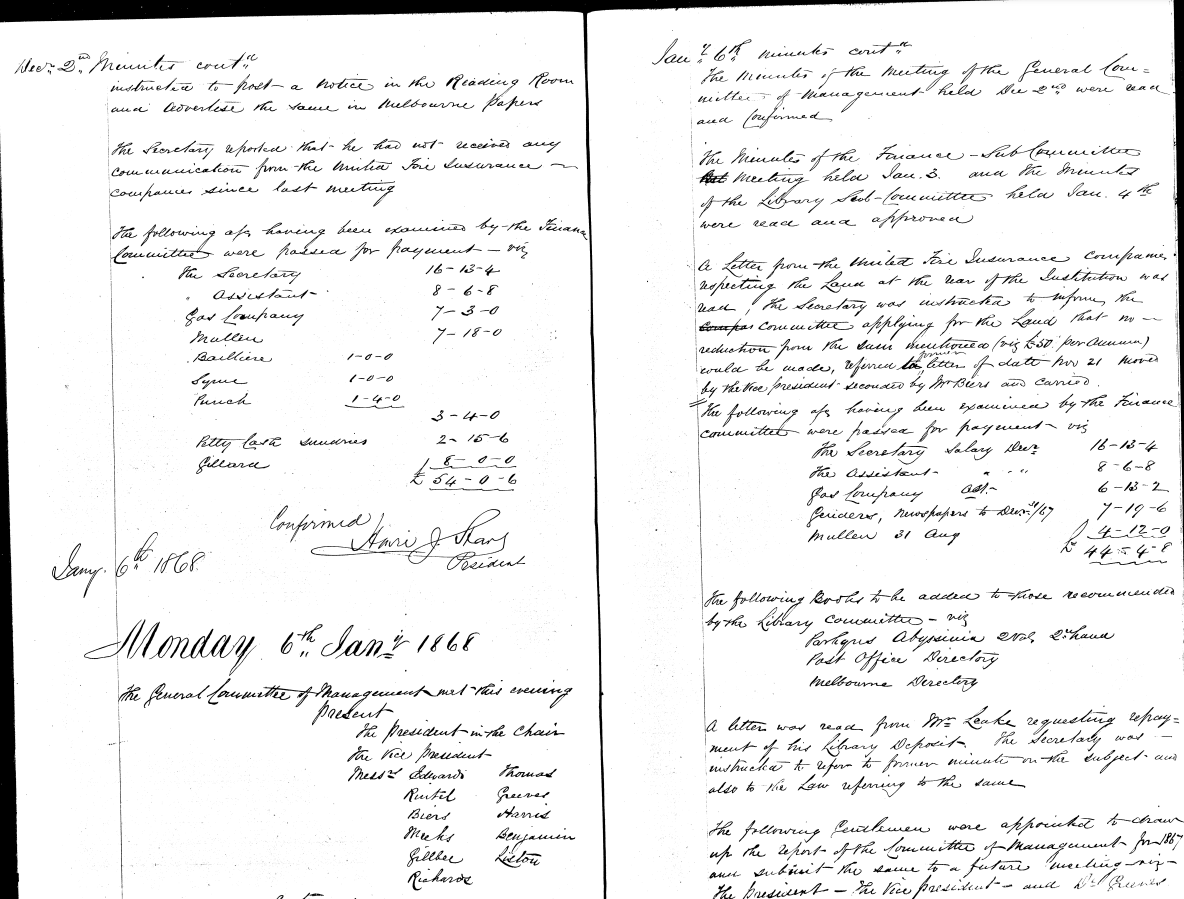 Decr. 2nd Minutes contd
instructed to post a notice in the Reading Room
and advertise the same in Melbourne Papers
The Secretary reported that he had not received any
communication from the United Fire Insurance
companies since last meeting
The following a/cs having been examined by the Finance
Committee were passed for payment – viz
The Secretary 16-13-4
" Assistant 8-6-8
Gas Company 7-3-0
Mullen 7-18-0
Bailliere 1-0-0
Syme 1-0-0
Punch 1-4-0
3-4-0
Petty Cash sundries 2-15-6
Gillard 8-0-0
£ 54-0-6
Confirmed
Henri J
President
Jany. 6th 1868.
Monday 6th Jany 1868
The General Committee of Management met this evening
Present
The President in the Chair
The Vice President
Messrs Edwards Thomas
Rintel Greeves
Biers Harris
Meeks Benjamin
Gillbee Liston
Richards
Jany 6th minutes contd
The Minutes of the Meeting of the General Com=
mittee of Management held Dec 2nd were read
and Confirmed
The Minutes of the Finance – Sub Committee
Meeting held Jan. 3. and the Minutes
of the Library Sub-Committee held Jan. 4th
were read and approved
A Letter from the United Fire Insurance companies
respecting the Land at the rear of the Institution was
read, the Secretary was instructed to inform the
committee applying for the Land that no
reduction from the sum mentioned (viz £50 per Annum)
would be made, referred to former letter of date Nov 21 moved
by the Vice President seconded by Mr Biers and carried.
The following a/cs having been examined by the Finance
committee were passed for payment – viz
The Secretary Salary Decr. 16-13-4
The Assistant " " " 8-6-8
Gas Company 6-13-2
Newspapers to Decr 31/67 7-19-6
Mullen 31 Aug 4-12-0
£ 44-4-8
The following Books to be added to those recommended
by the Library Committee – viz
Parkyns Abyssinia 2 vols 2nd hand
Post Office Directory
Melbourne Directory
A letter was read from Mr Leake requesting repay=
ment of his Library Deposit. The Secretary was –
instructed to refer to former minute on the subject and
also to the Law referring to the same
The following Gentlemen were appointed to draw
up the report of the Committee of Management for 1867
and submit the same to a future meeting viz
The President – The Vice President – and Dr Greeves